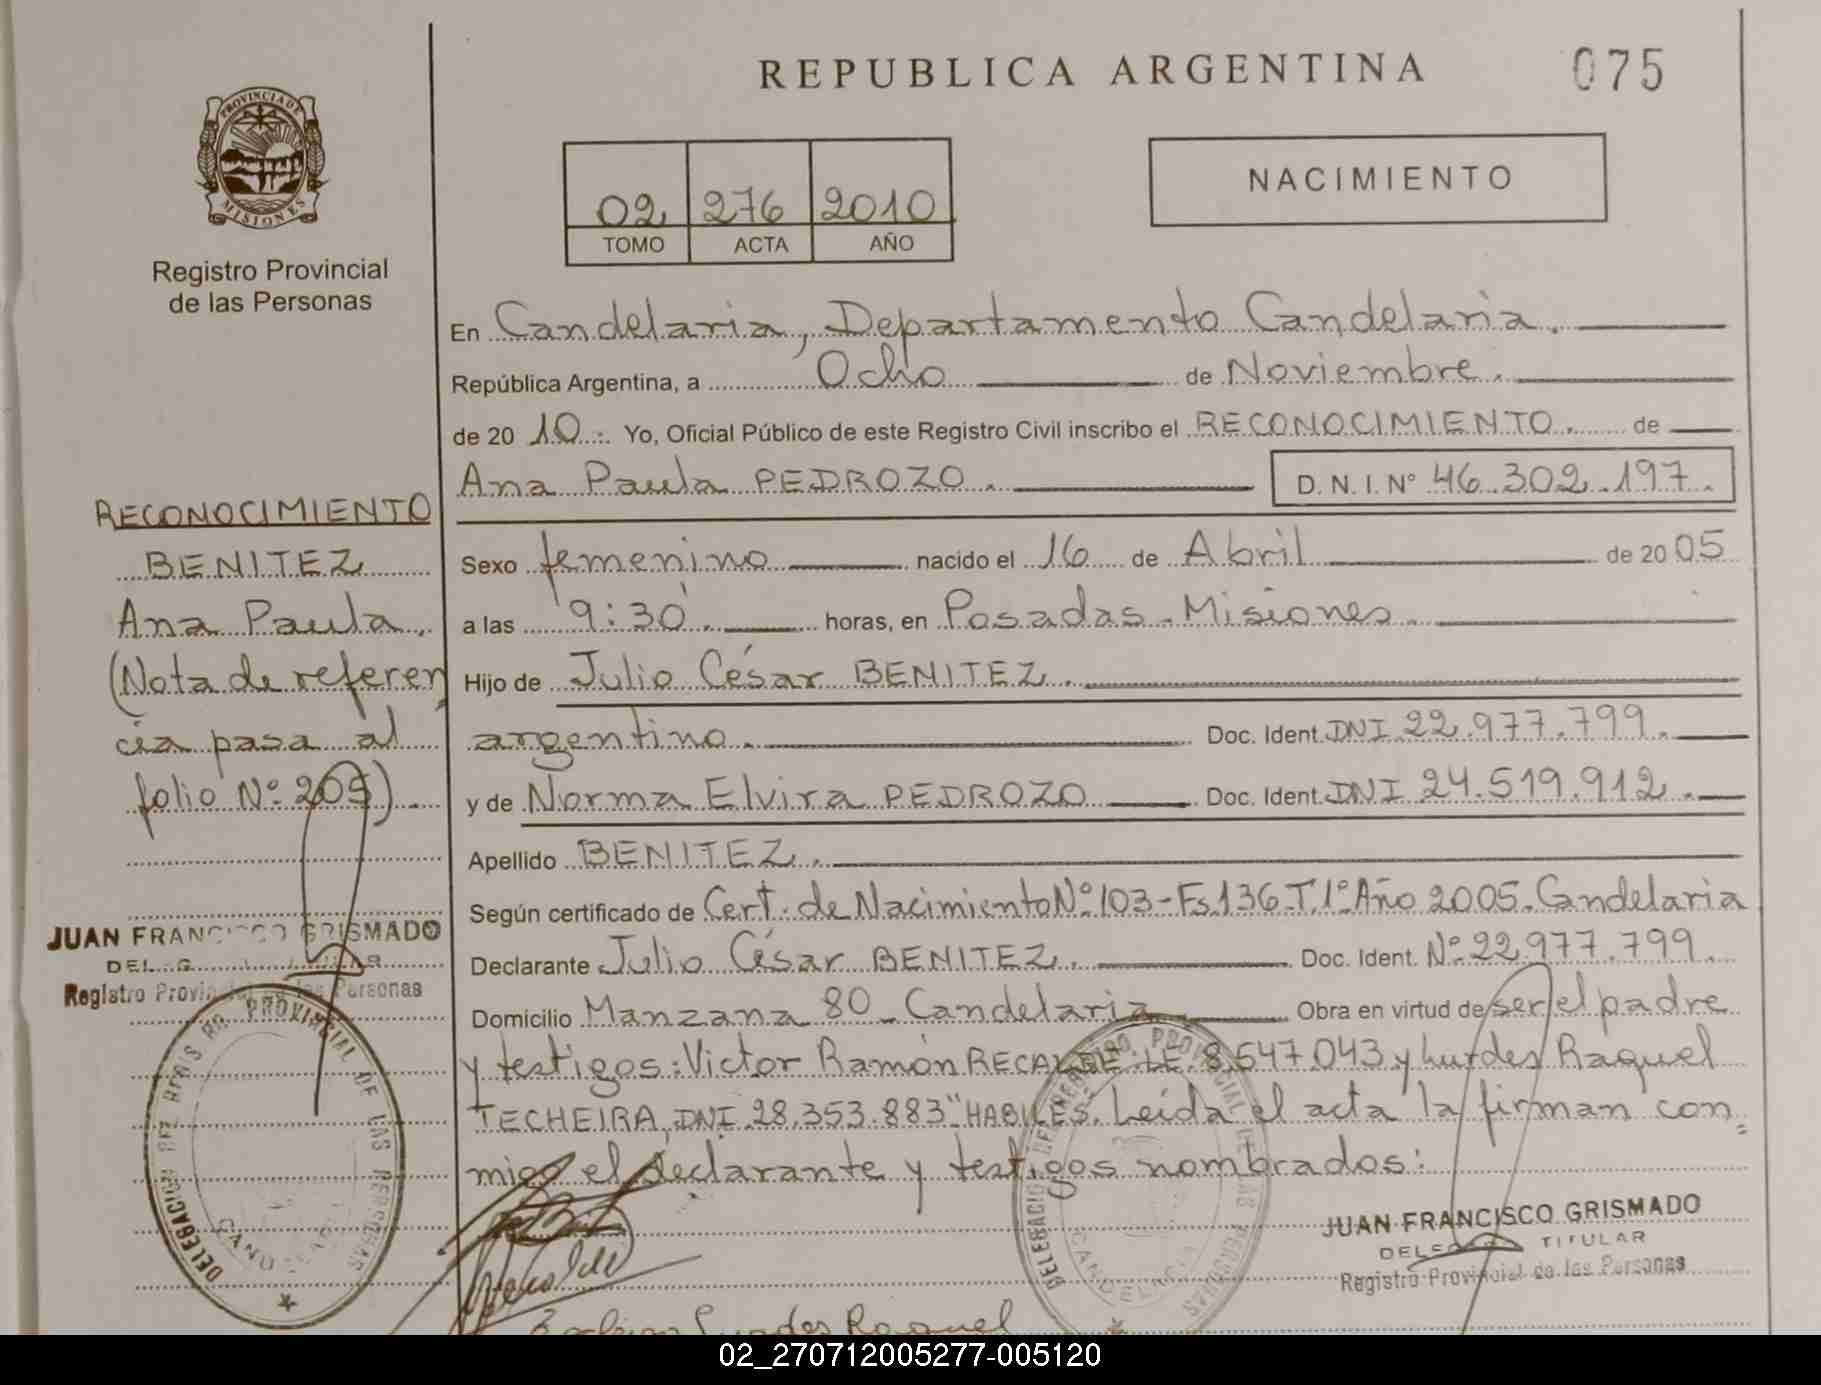 REPUBLICA ARGENTINA
075
PROVINCIA DE
MISIONES
Registro Provincial
de las Personas
02 276 2010
TOMO ACTA AÑO
NACIMIENTO
En Candelaria, Departamento Candelaria.
República Argentina, a Ocho de Noviembre.
de 20 10.- Yo, Oficial Público de este Registro Civil inscribo el RECONOCIMIENTO. de
Ana Paula PEDROZO. D.N.I.Nº 46.302.197.
Sexo femenino nacido el 16 de Abril de 20 05
a las 9:30. horas, en Posadas - Misiones.
Hijo de Julio César BENITEZ.
argentino. Doc. Ident. DNI 22.977.799.
y de Norma Elvira PEDROZO Doc. Ident. DNI 24.519.912.
Apellido BENITEZ.
Según certificado de Cert. de Nacimiento Nº 103-Fs.136 T.1º Año 2005. Candelaria
Declarante Julio César BENITEZ. Doc. Ident. Nº 22.977.799.
Domicilio Manzana 80 - Candelaria Obra en virtud de ser el padre
y testigos: Victor Ramón RECALDE LE. 8.547.043 y Lurdes Raquel
TECHEIRA, DNI 28.353.883 "HABILES. Leída el acta la firman con=
migo el declarante y testigos nombrados:
RECONOCIMIENTO
BENITEZ
Ana Paula.
(Nota de referen
cia pasa al
folio Nº 205).
JUAN FRANCISCO GRISMADO
Registro Provincial de las Personas
DELEGACION DEL REGISTRO PROVINCIAL DE LAS PERSONAS
CANDELARIA
DELEGACION DEL REGISTRO PROVINCIAL DE LAS PERSONAS
CANDELARIA
JUAN FRANCISCO GRISMADO
DELEGADO TITULAR
Registro Provincial de las Personas
Lurdes Raquel
02_270712005277-005120